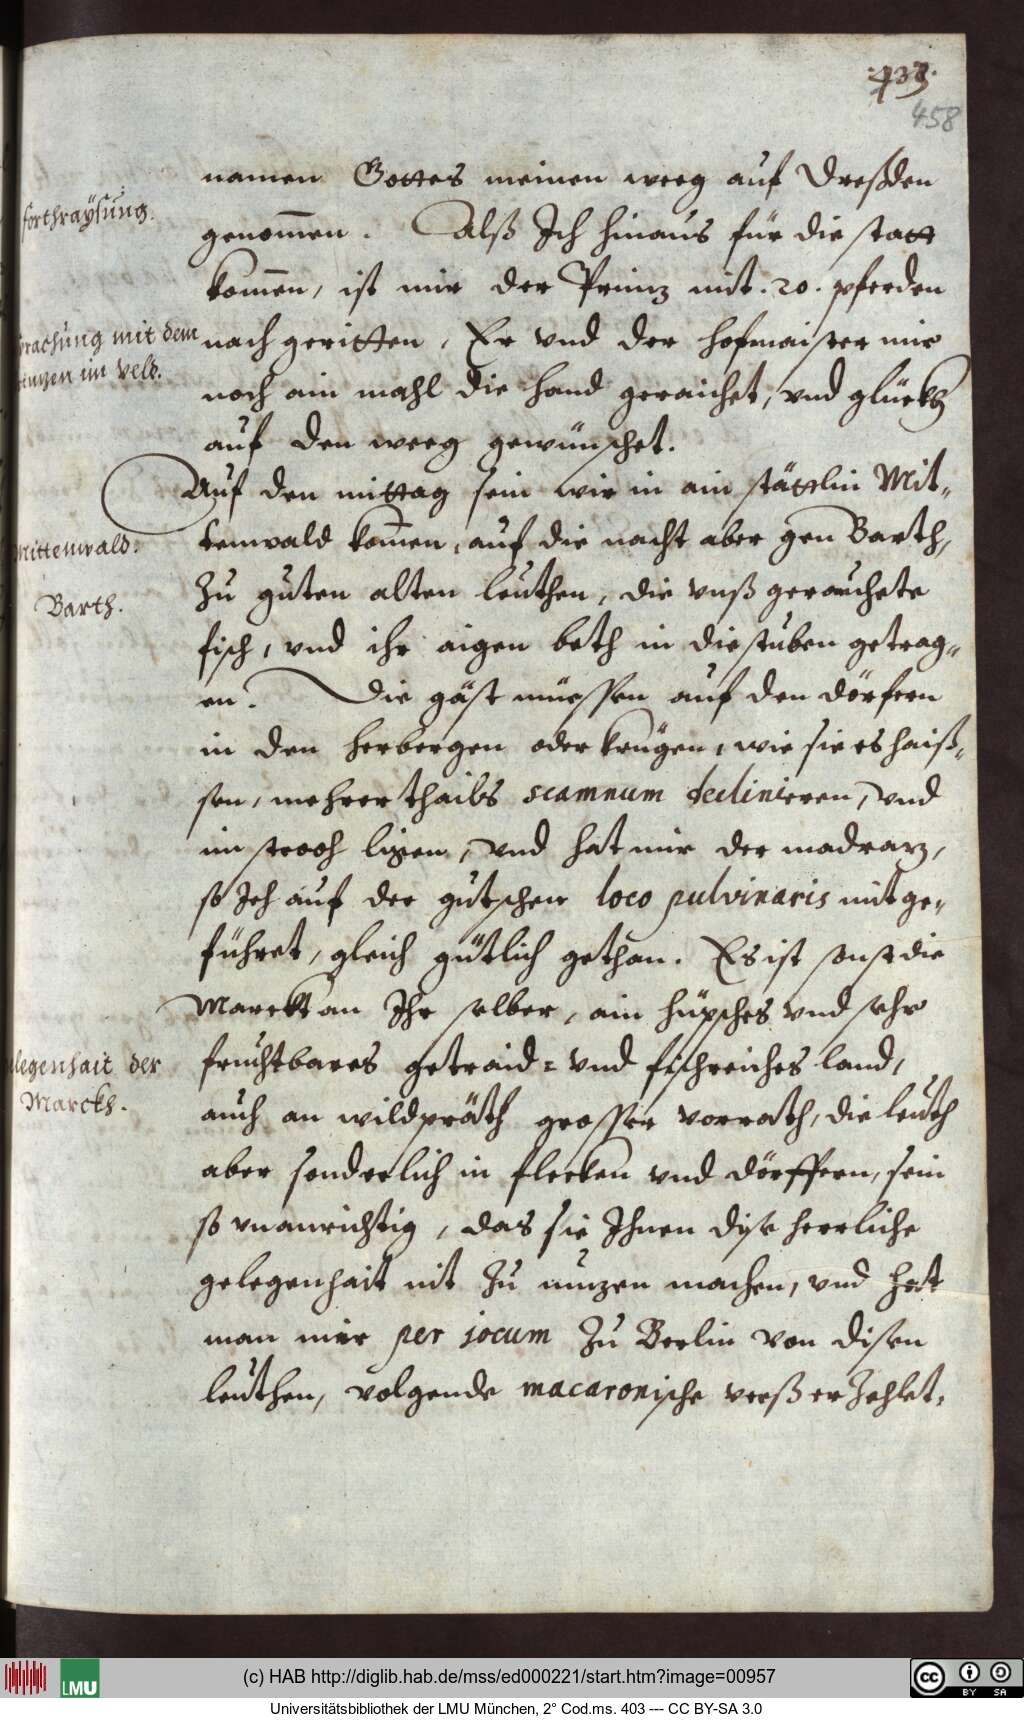 433.
458
namen Gottes meinen weeg auf Dreßden
forthraÿsung.
genom̄en. Alß Ich hinaus für die statt
kom̄en, ist mir der Prinz mit .20. pferden
prachung mit dem
rinzen im veld.
nach geritten, Er vnd der hofmaister mir
noch ain mahl die hand geraichet, vnd glückh
auf den weeg gewünschet.
Auf den mittag sein wir in ain stättlin Mit-
Mittenwald.
tenwald kom̄en, auf die nacht aber gen Barth,
Barth.
Zu guten alten leuthen, die vnß gerauchete
fisch, vnd ihr aigen beth in die stuben getrag-
en. Die gäst müessen auf den dörfern
in den herbergen oder krügen, wie sie es haiß-
sen, mehrerthails scamnum declinieren, vnd
im strooh ligen, vnd hat mir der madraz,
so Ich auf der gutschen loco pulvinaris mitge-
führet, gleich gütlich gethan. Es ist sonst die
Marckt an Ihr selber, ain hüpsches vnd sehr
elegenhait der
Marckh.
fruchtbares getraid- vnd fischreiches land,
auch an wildpräth grosser vorrath, die leuth
aber sonderlich in flecken vnd dörffern, sein
so vnanrichtig, das sie Ihnen dise herrliche
gelegenhait nit Zu nuzen machen, vnd hat
man mir per jocum Zu Berlin von disen
leuthen, volgende macaronische verß erZehlet.
(c) HAB http://diglib.hab.de/mss/ed000221/start.htm?image=00957
LMU
cc BY SA
Universitätsbibliothek der LMU München, 2° Cod.ms. 403 --- CC BY-SA 3.0